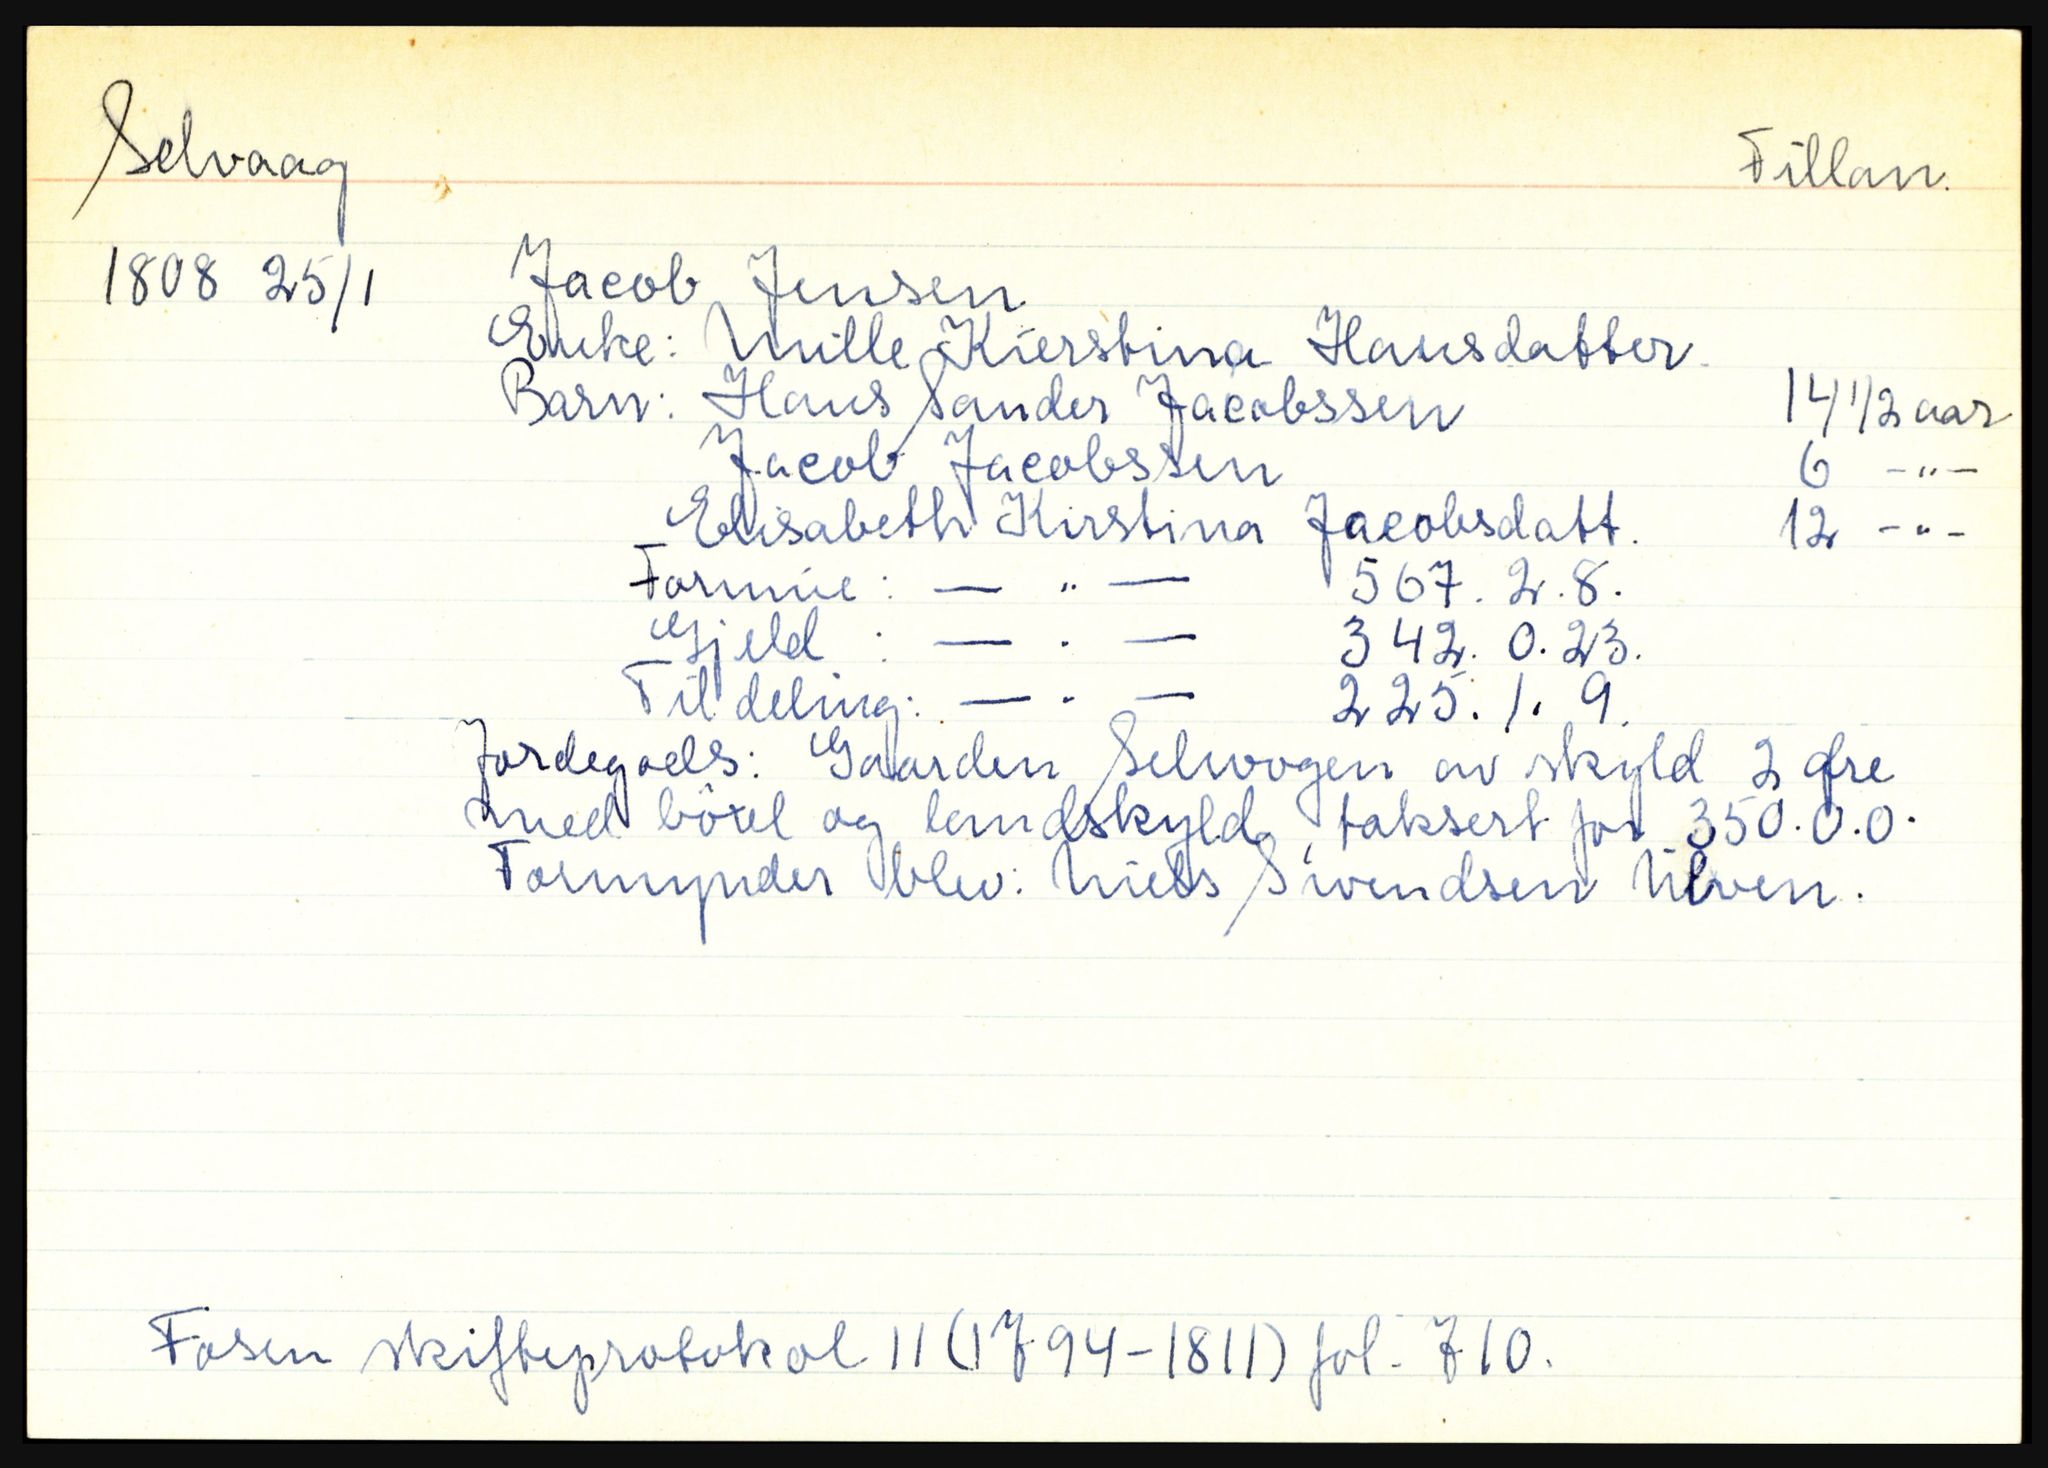 Selvaag Fillan.
1808 25/1 Jacob Jensen
Enke: Mille Kierstina Hansdatter.
Barn: Hans Sander Jacobssen 14 1/2 aar
Jacob Jacobssen 6 -"-
Elisabeth Kirstina Jacobsdatt. 12 -"-
Formue: — " — 567. 2. 8.
Gjeld : — . — 342. 0. 23.
Til deling: — . — 225. 1. 9.
Jordegods: Gaarden Selwogen av skyld 2 øre
med böxel og landskyld, taksert for 350.0.0.
Formynder blev: Niels Siwendsen Ulven.
Fosen skifteprotokol 11 (1794-1811) fol. 710.